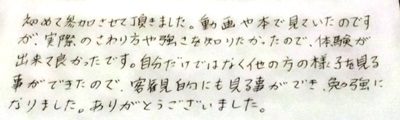 初めて参加させて頂きました。動画や本で見ていたのです
が、実際のさわり方や強さを知りたかったので、体験が
出来て良かったです。自分だけではなく他の方の様子を見る
事ができたので、客観的にも見る事ができ、勉強に
なりました。ありがとうございました。